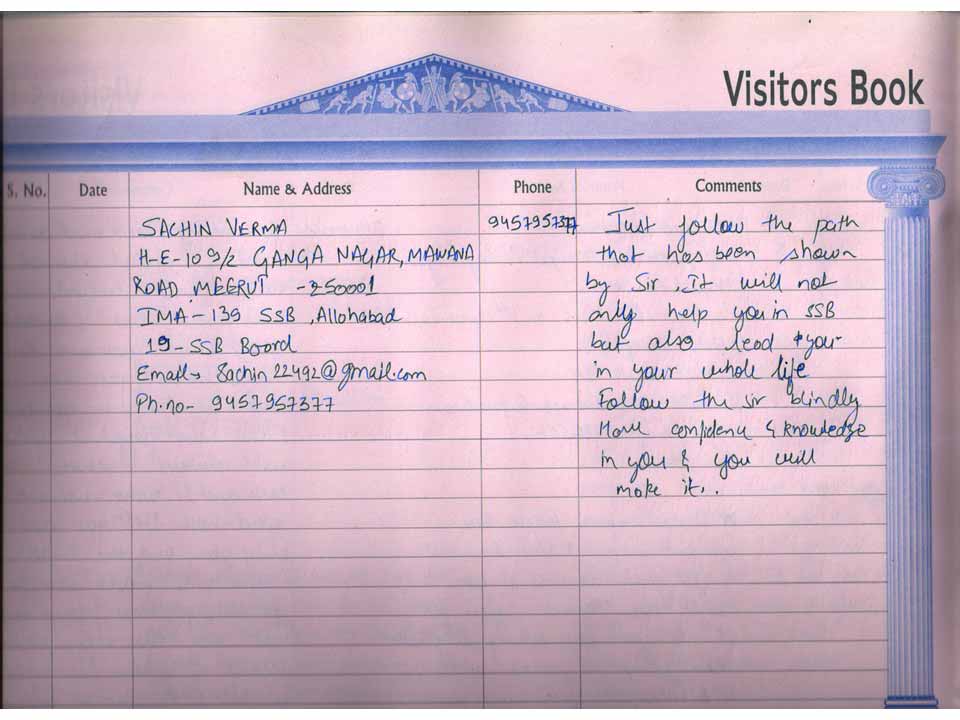 Visitors Book
S. No. Date Name & Address Phone Comments
SACHIN VERMA 9457957377 Just follow the path
H-E-10 9/2 GANGA NAGAR, MAWANA that has been shown
ROAD MEERUT -250001 by Sir, It will not
IMA-139 SSB, Allohabad only help you in SSB
19-SSB Board but also lead you
Email→ Sachin22492@gmail.com in your whole life
Ph.no- 9457957377 Follow the sir blindly
Have confidence & knowledge
in you & you will
make it..